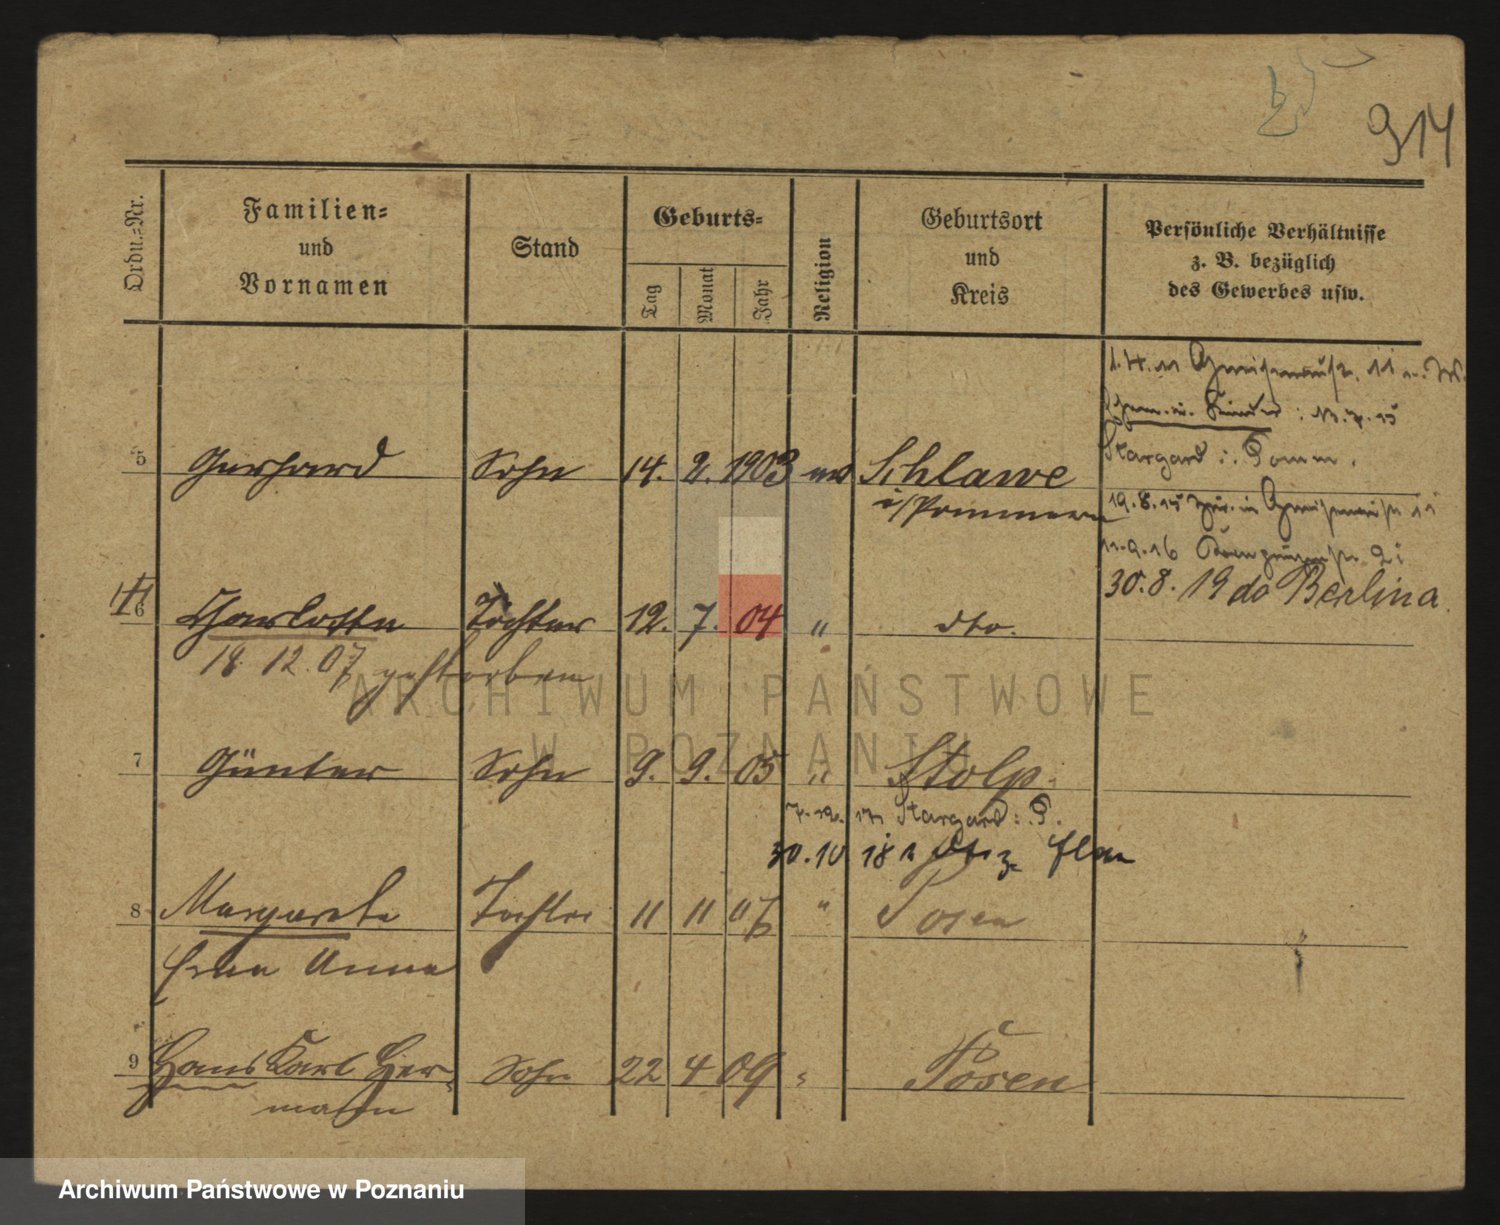 914
Ordn.-Nr.
Familien-
und
Vornamen
Stand
Geburts-
Tag
Monat
Jahr
Religion
Geburtsort
und
Kreis
Persönliche Verhältnisse
z. B. bezüglich
des Gewerbes usw.
1.4.11 Gneisenaustr. 11
Stargard i. Pomm.
5 Gerhard Sohn 14. 2. 1903 Schlawe
i/Pommern
19.8.15 Gneisenaustr 11
11.9.16
30.8.19 do Berlin a
6 Charlotte Tochter 12. 7. 04 " dto.
18 12. 07 gestorben
ARCHIWUM PAŃSTWOWE
W POZNANIU
7 Günter Sohn 9. 9. 05 " Stolp
Stargard i. P.
30.10 18
8 Margarete Tochter 11 11 07 " Posen
Erna Anna
9 Hans Karl Her- Sohn 22 4 09 " Posen
mann
Archiwum Państwowe w Poznaniu